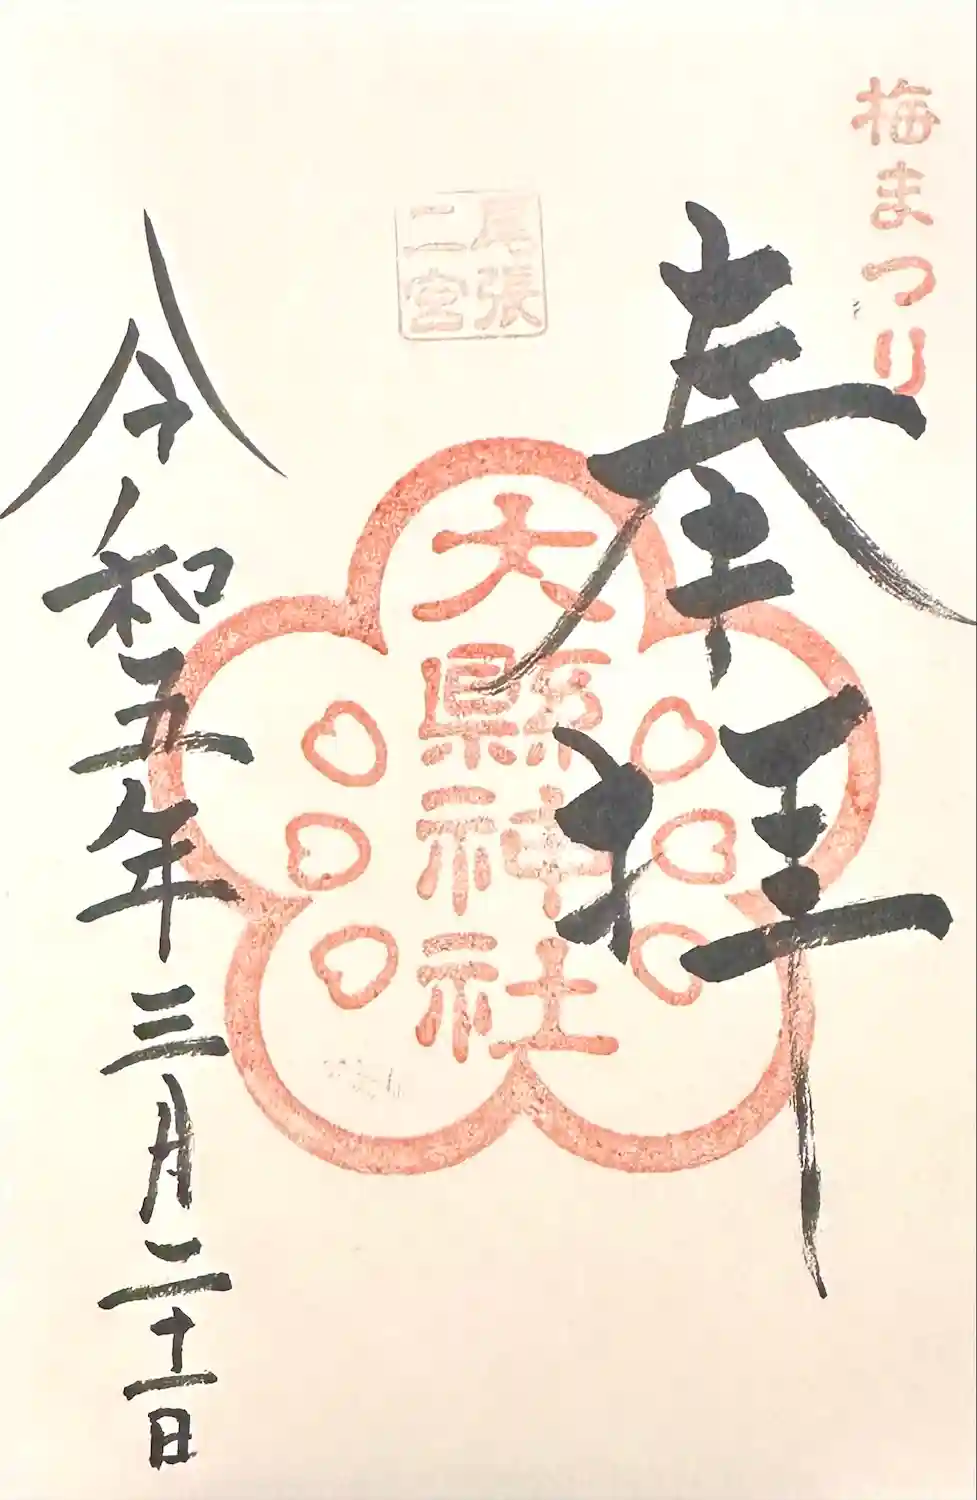 梅まつり
奉拝
尾張
二宮
大縣神社
令和五年三月二十一日